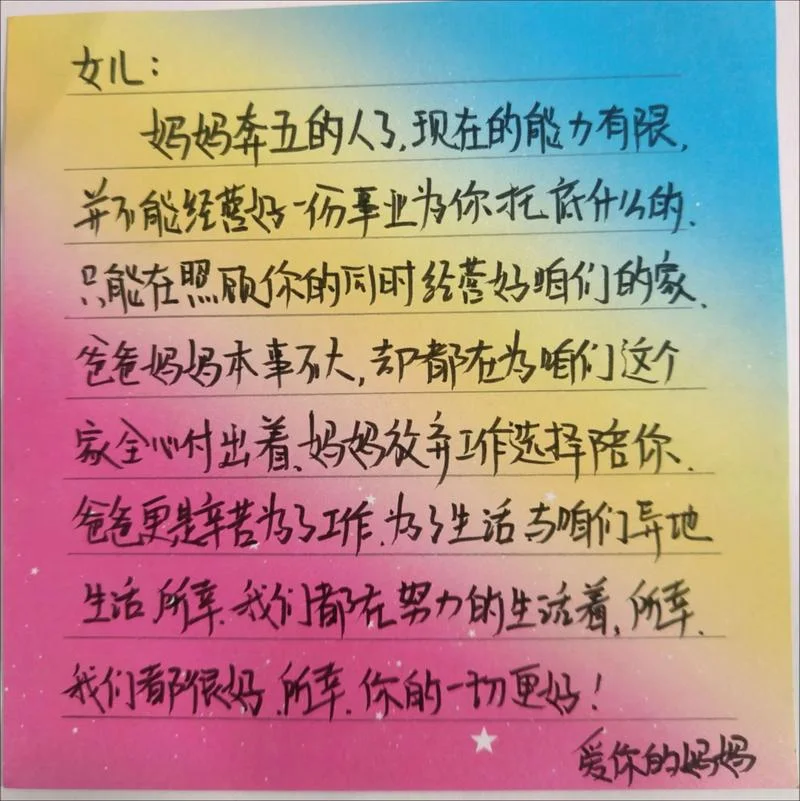 女儿：
妈妈奔五的人了,现在的能力有限,
并不能经营好一份事业为你托底什么的、
只能在照顾你的同时经营好咱们的家、
爸爸妈妈本事不大,却都在为咱们这个
家全心付出着、妈妈放弃工作选择陪你、
爸爸更是辛苦为了工作、为了生活、与咱们异地
生活、所幸、我们都在努力的生活着,所幸、
我们都很好、所幸、你的一切更好！
爱你的妈妈